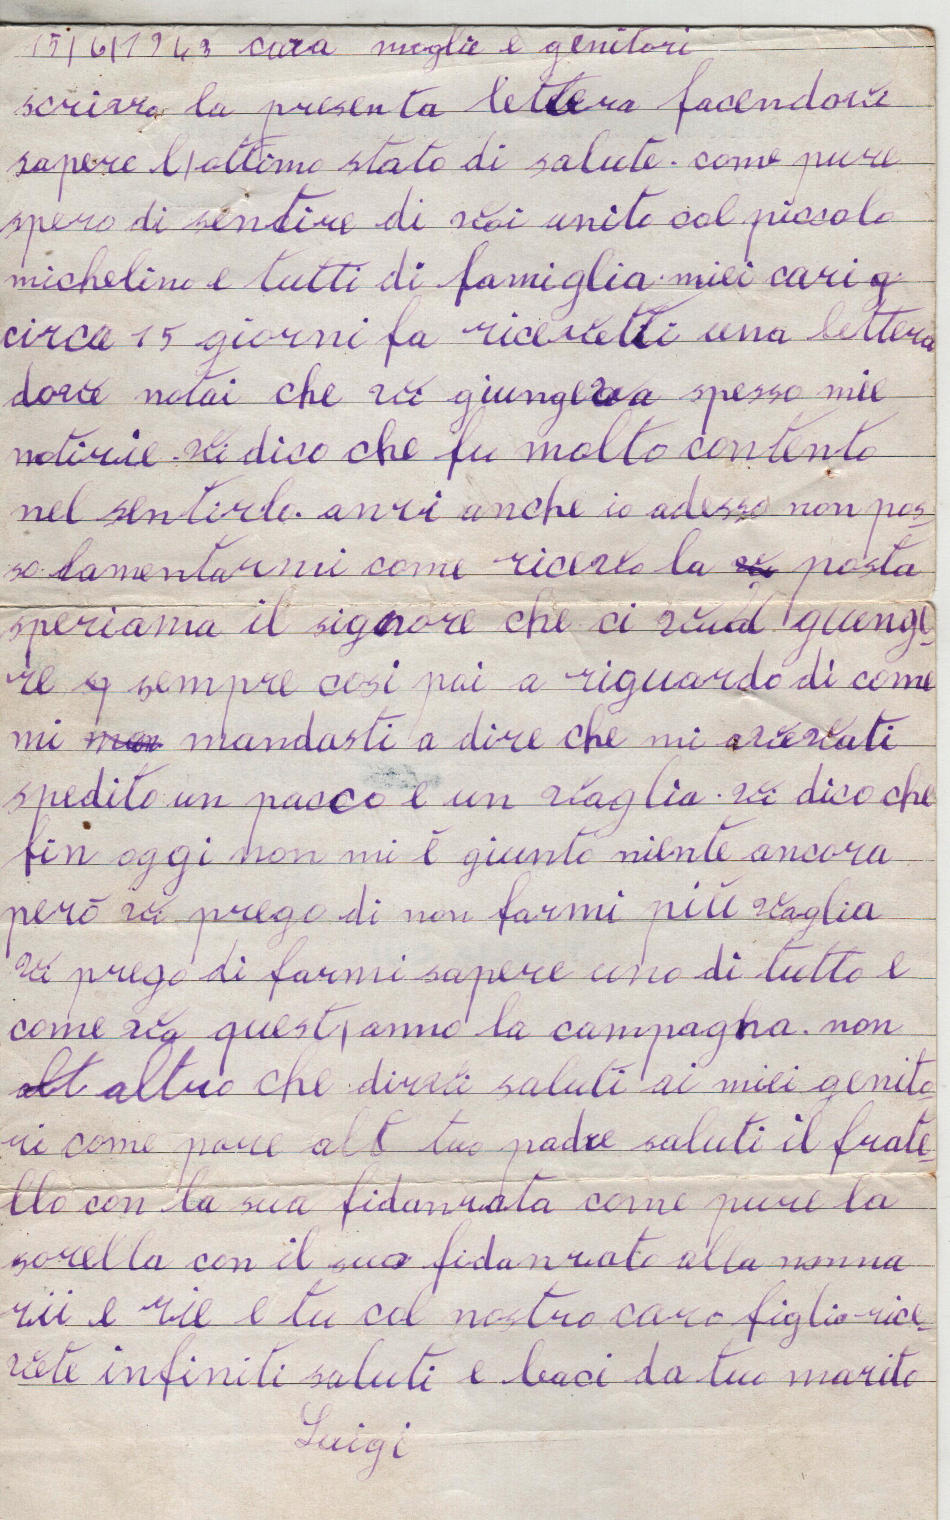 15/6/1943 cara moglie e genitori
scrivo la presenta lettera facendovi
sapere l'ottimo stato di salute. come pure
spero di sentire di voi unito col piccolo
michelino e tutti di famiglia. miei cari
circa 15 giorni fa ricevetti una lettera
dove notai che vi giungeva spesso mie
notirie. vi dico che fu molto contento
nel sentirlo. anri anche io adesso non pos-
so lamentarmi come ricevo la posta
speriama il signore che ci vual giunge-
re sempre cosi poi a riguardo di come
mi mandasti a dire che mi avevati
spedito un pacco e un vaglia. vi dico che
fin oggi non mi è giunto niente ancora
però vi prego di non farmi più vaglia
vi prego di farmi sapere uno di tutto e
come va quest'anno la campagna. non
altro che dirvi saluti ai miei genito-
ri come pure alt tuo padre saluti il frate-
llo con la sua fidanrata come pure la
sorella con il suo fidanrato alla nonna
rii e rie e tu col nostro caro figlio rice-
vete infiniti saluti e baci da tuo marito
Luigi